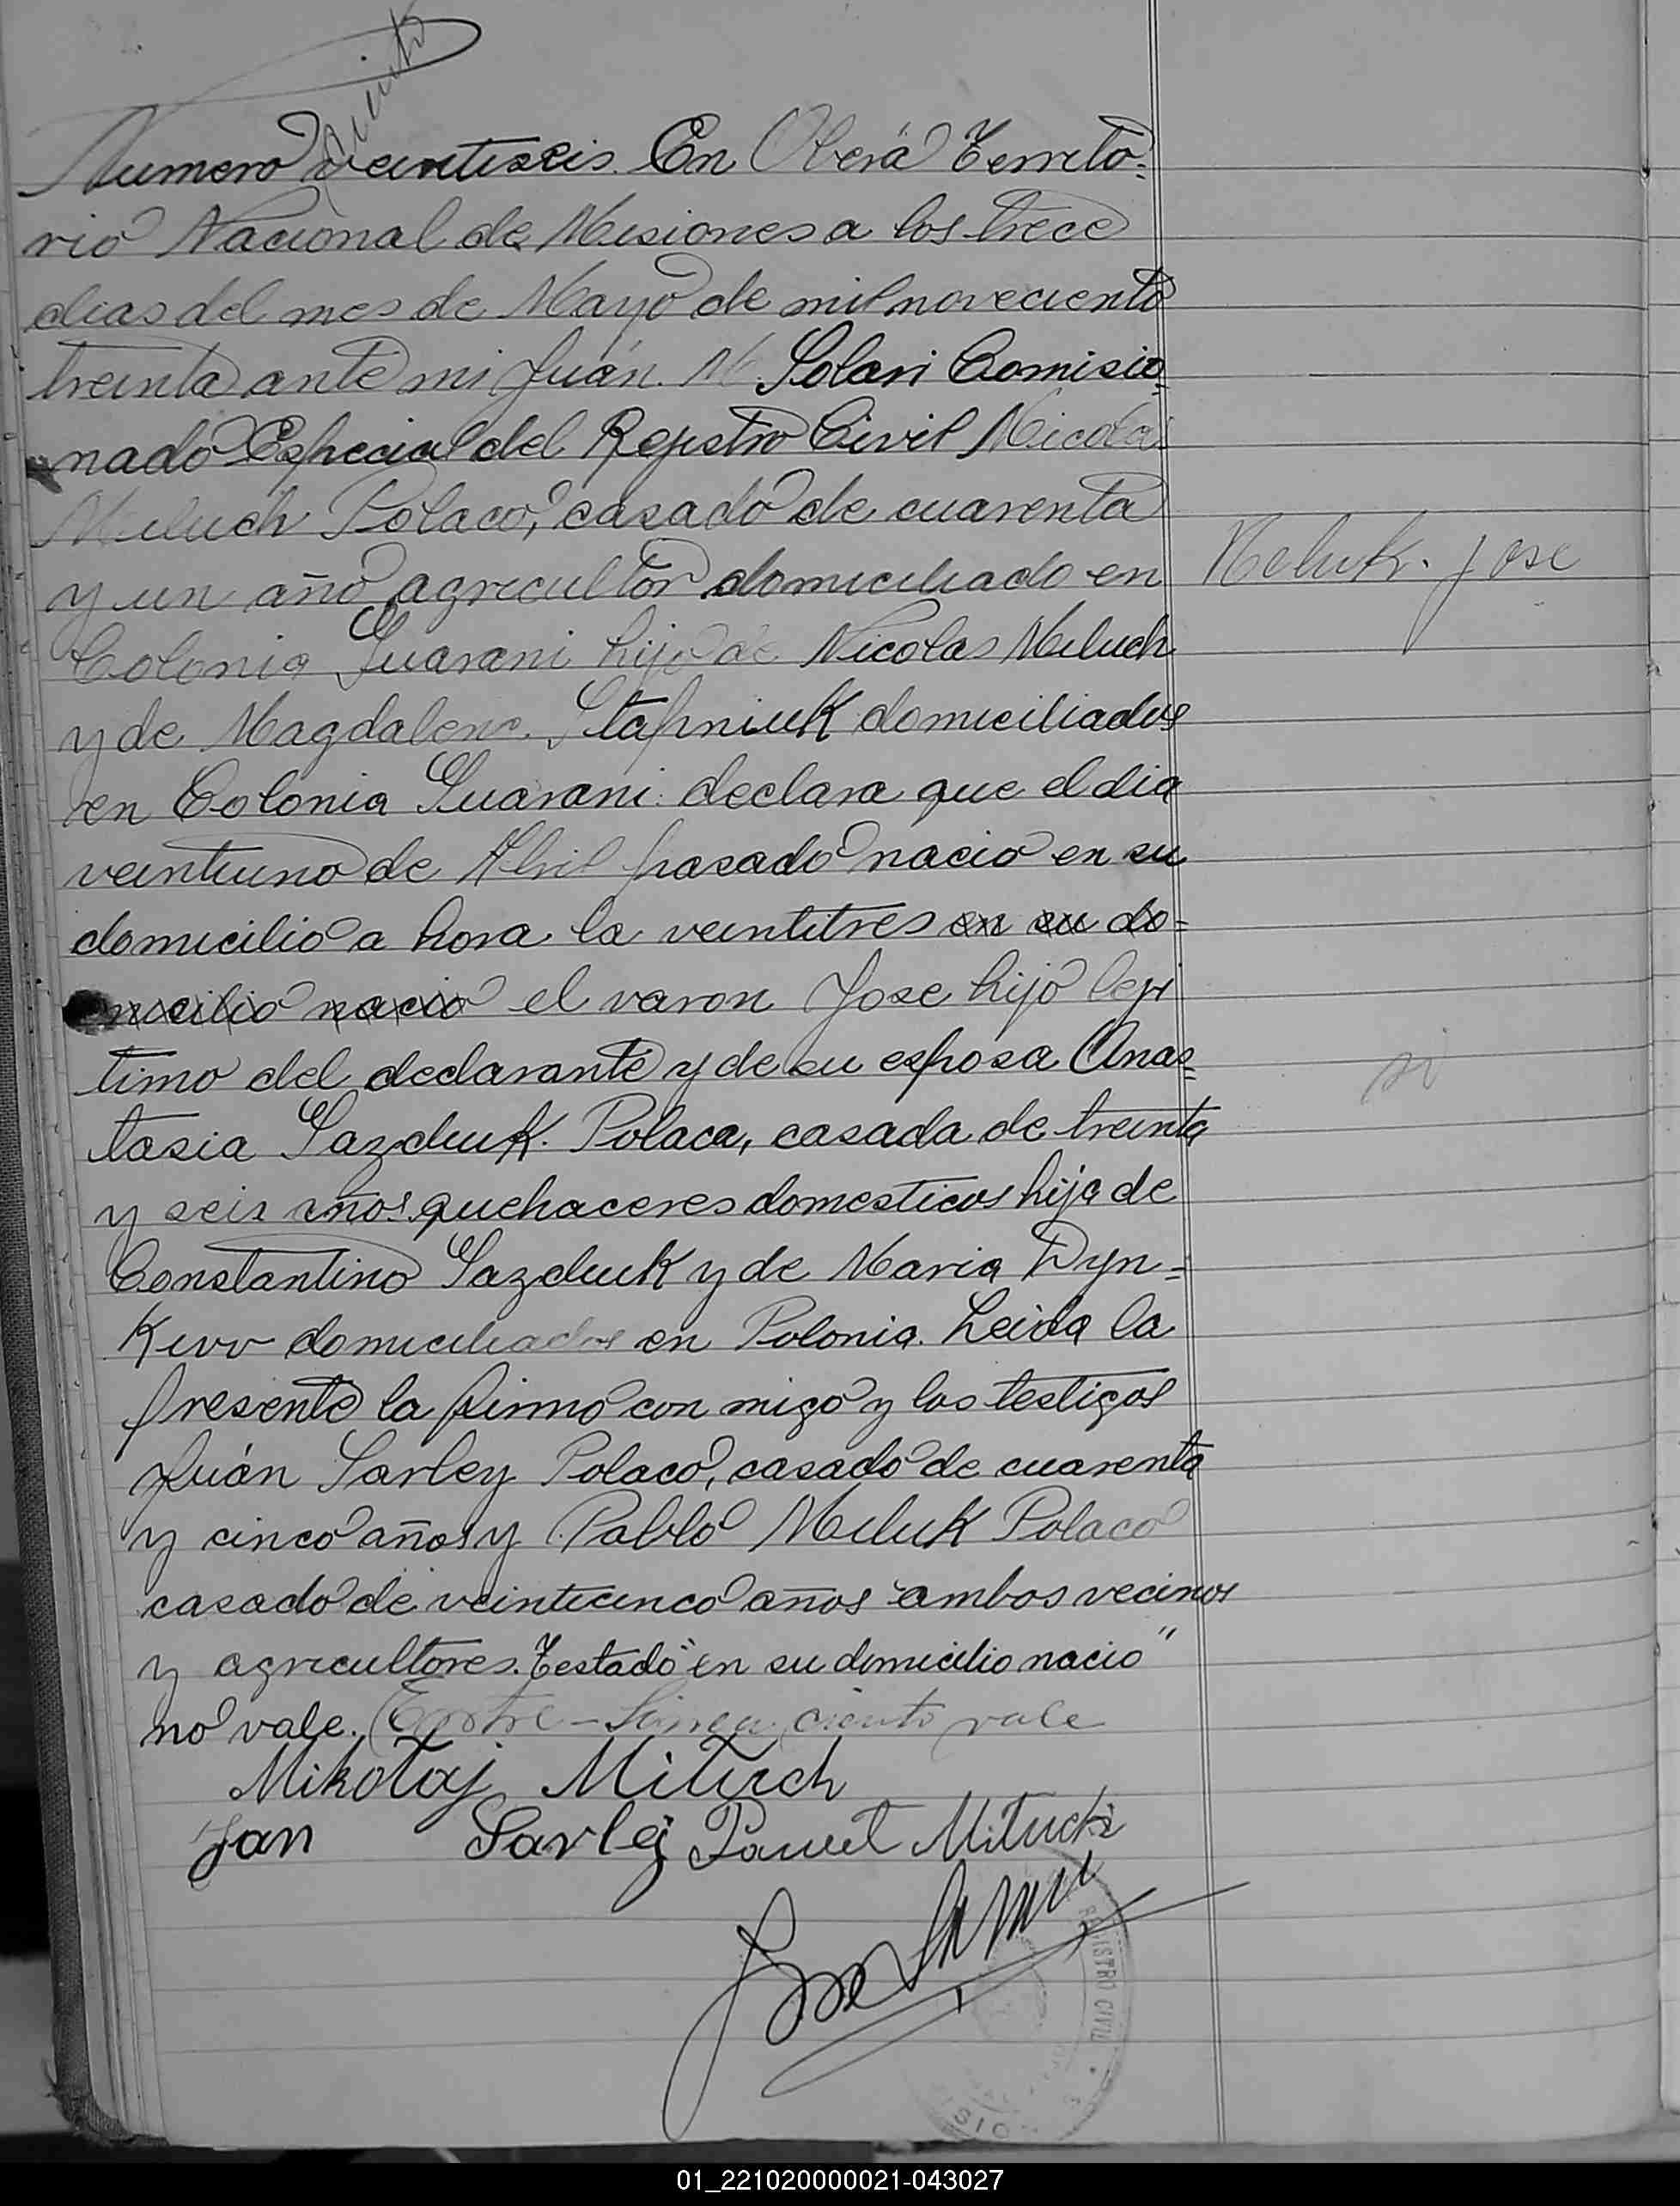 ciento
Numero veintiseis. En Oberá Territo=
rio Nacional de Misiones a los trece
dias del mes de Mayo de mil noveciento
treinta ante mi Juán. M. Solari Comisio=
nado Especial del Rejistro Civil Nicolai
Miluch Polaco, casado de cuarenta
y un año agricultor domiciliado en
Colonia Guarani hijo de Nicolas Miluch
y de Magdalena Stapniuk domiciliados
en Colonia Guarani declara que el dia
veintiuno de Abril pasado nacio en su
domicilio a hora la veintitres en su do=
micilio nacio el varon Jose hijo leji
timo del declarante y de su esposa Anas=
tasia Sazduk. Polaca, casada de treinta
y seis años quehaceres domesticos hija de
Constantino Sazduk y de Maria Dyn=
Kivv domiciliados en Polonia. Leida la
presente la firmo con migo y los testigos
Juán Sarley Polaco, casado de cuarenta
y cinco años y Pablo Miluk Polaco
casado de veinticinco años ambos vecinos
y agricultores. Testado "en su domicilio nacio"
no vale. Entre-linea ciento vale
Mikołaj Miłuch
Jan Sarlej Paweł Miłuch
Meluk. Jose
si
REGISTRO CIVIL
01_221020000021-043027